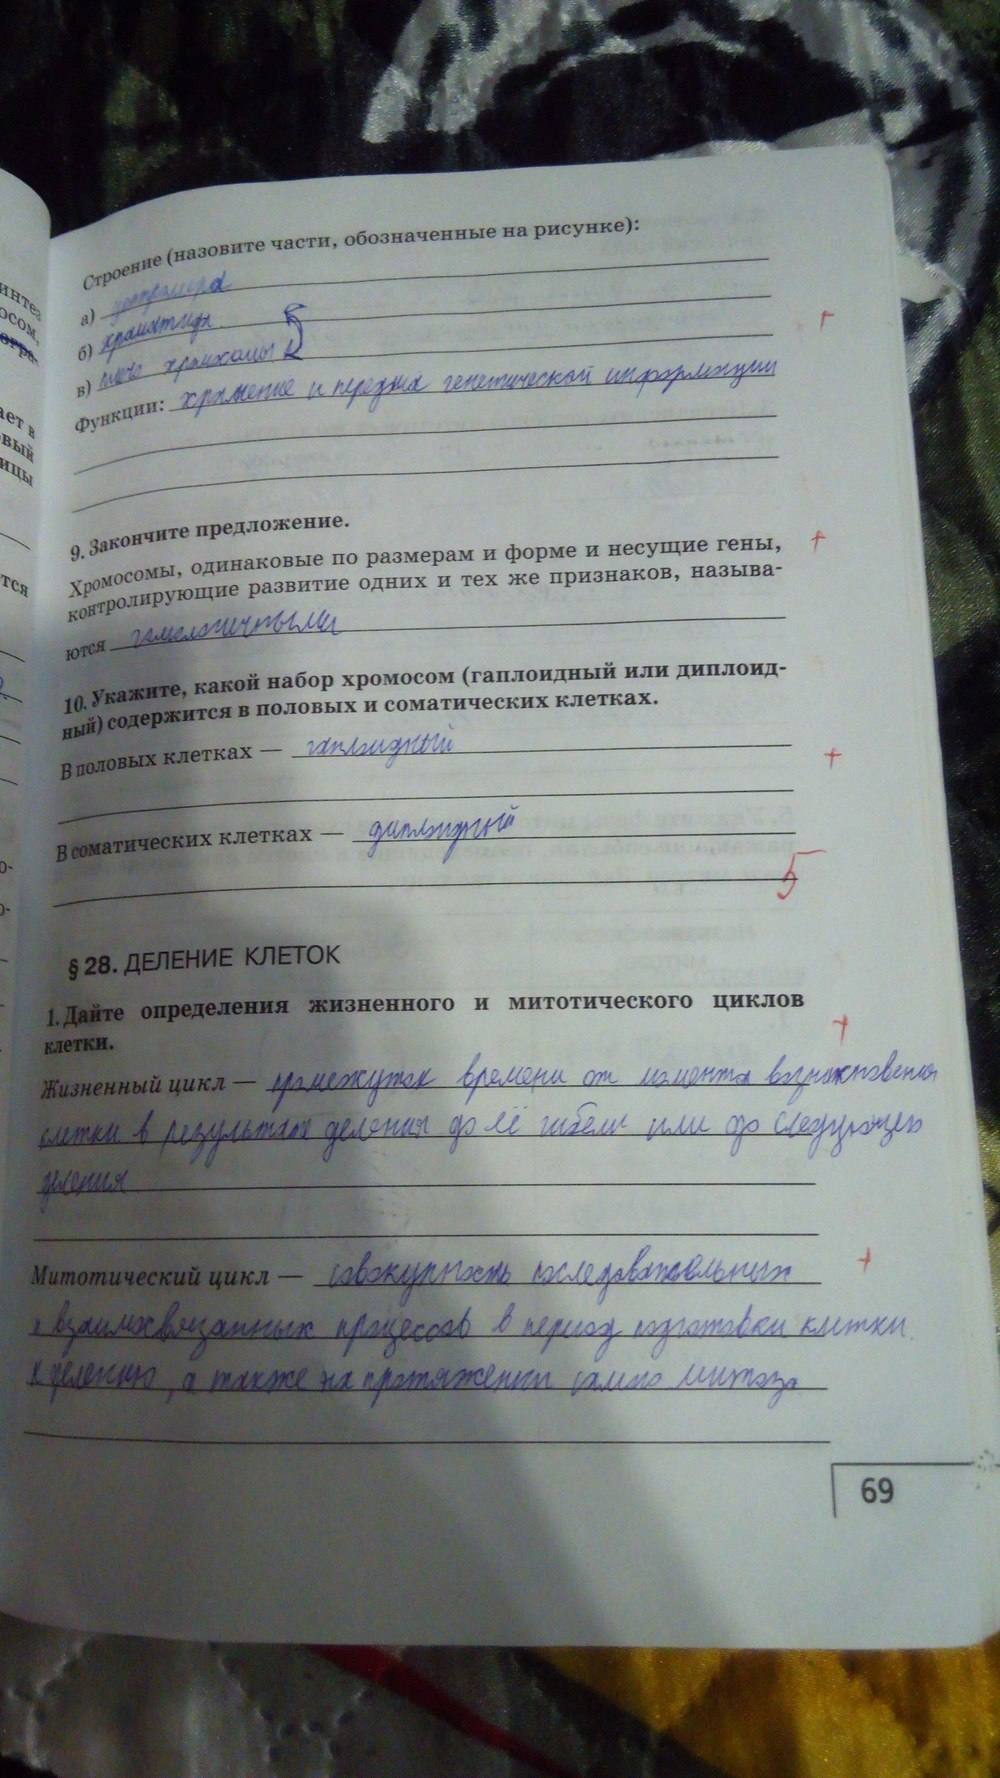 интез
осом,
огра-
ает в
овый
ицы
тся
Строение (назовите части, обозначенные на рисунке):
а) центромера
б) хроматида
в) плечо хромосомы
Функции: хранение и передача генетической информации
9. Закончите предложение.
Хромосомы, одинаковые по размерам и форме и несущие гены,
контролирующие развитие одних и тех же признаков, называ-
ются гомологичными
10. Укажите, какой набор хромосом (гаплоидный или диплоид-
ный) содержится в половых и соматических клетках.
В половых клетках — гаплоидный
В соматических клетках — диплоидный
5
§ 28. ДЕЛЕНИЕ КЛЕТОК
1. Дайте определения жизненного и митотического циклов
клетки.
Жизненный цикл — промежуток времени от момента возникновения
клетки в результате деления до её гибели или до следующего
деления
Митотический цикл — совокупность последовательных
и взаимосвязанных процессов в период подготовки клетки
к делению, а также на протяжении самого митоза
69